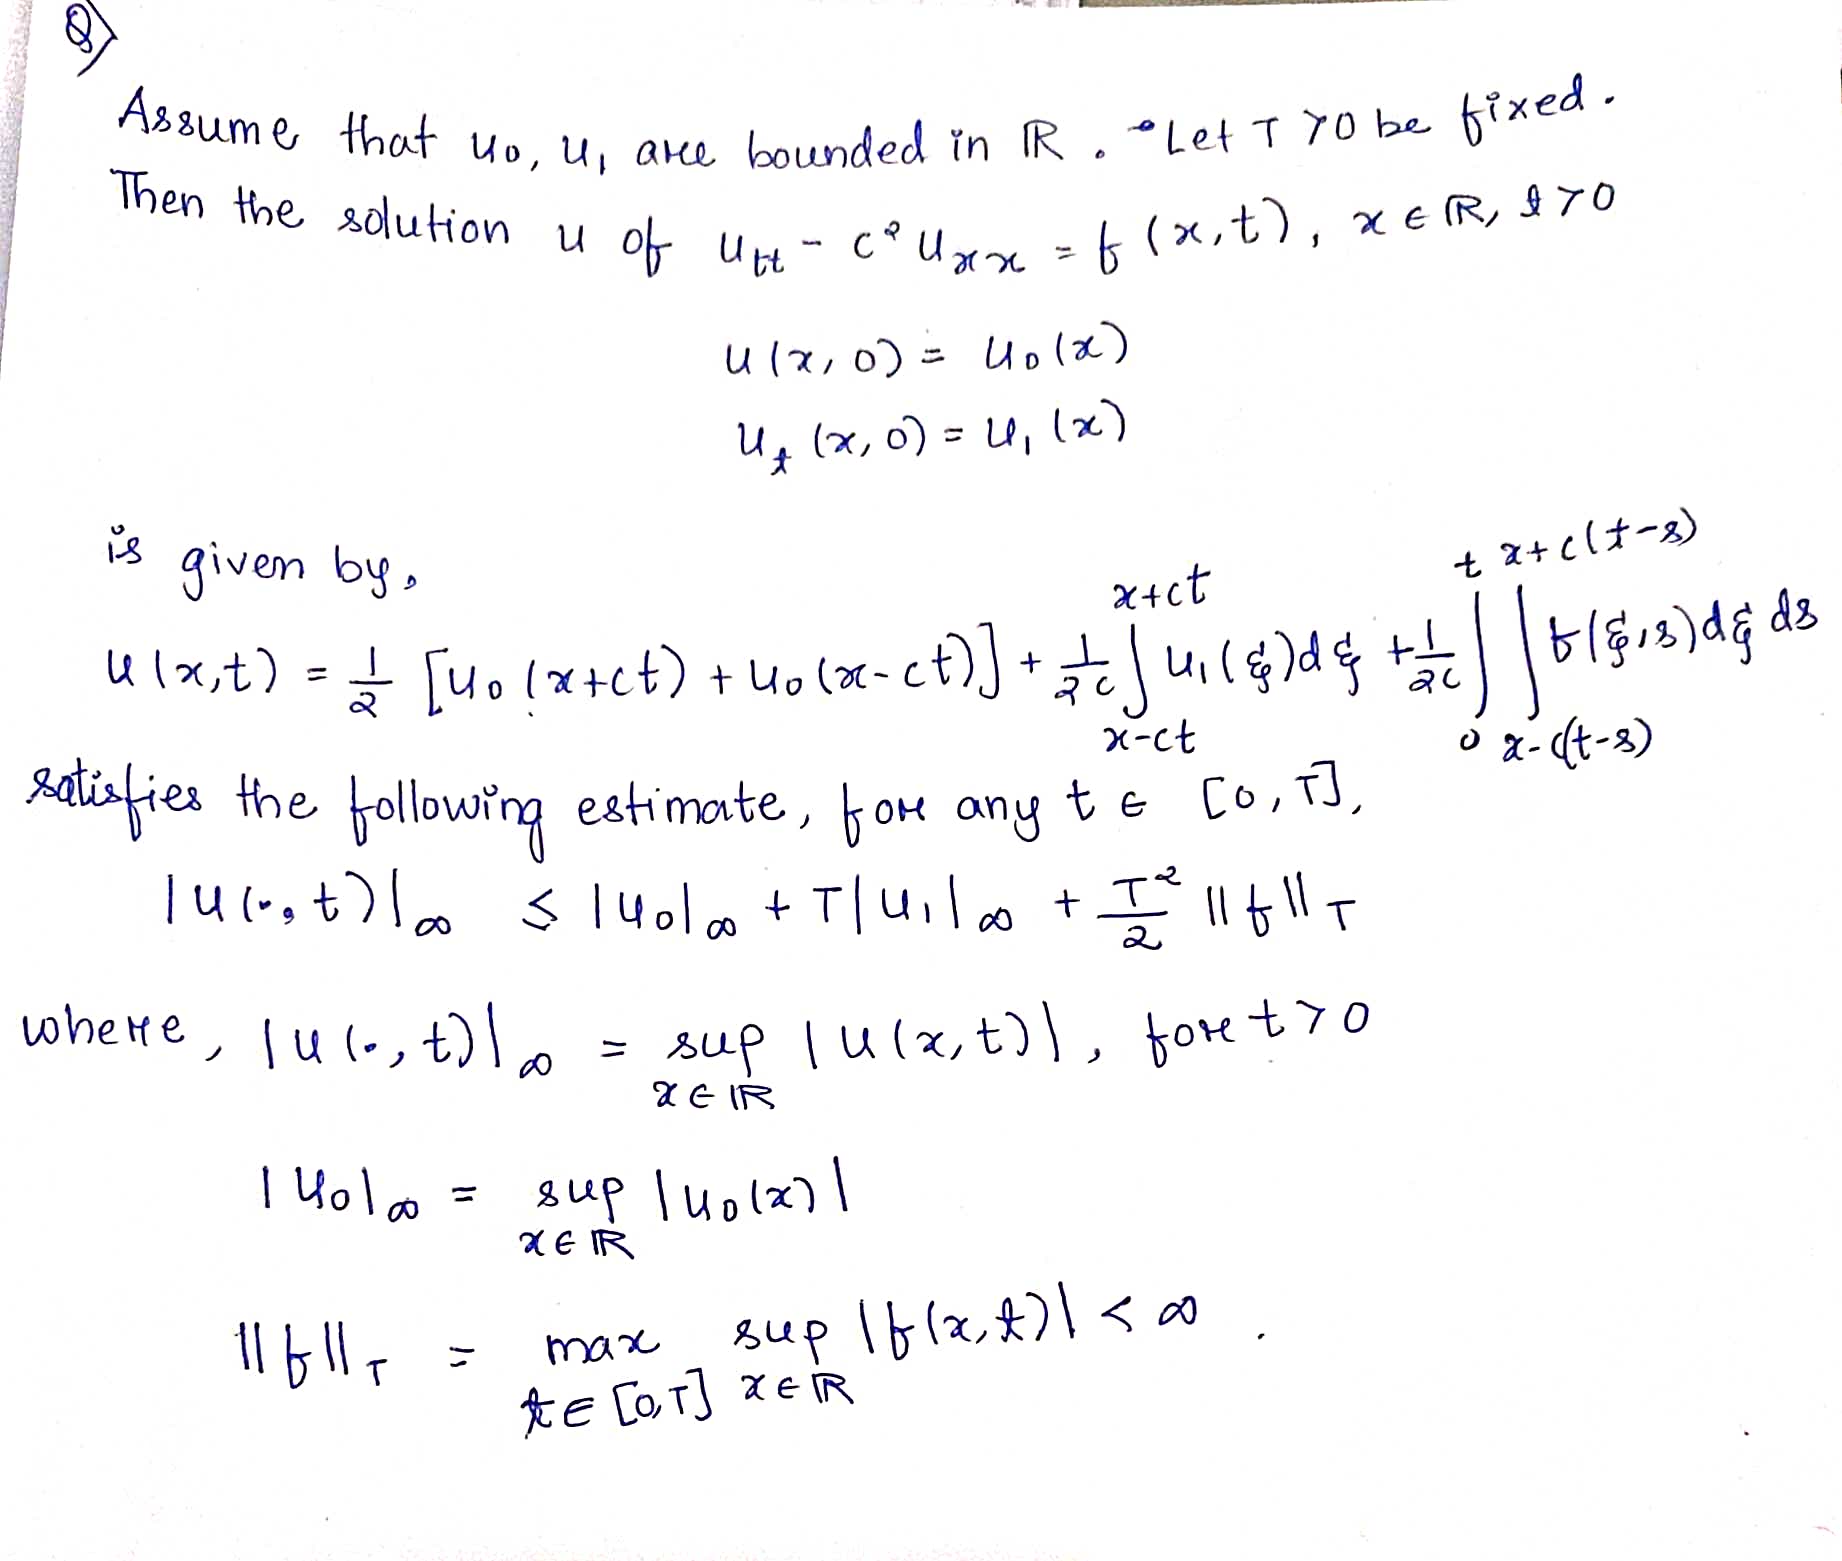 Q)
Assume that u₀, u₁ are bounded in ℝ. Let T > 0 be fixed.
Then the solution u of u_tt - c² u_xx = f(x,t), x ∈ ℝ, t > 0
u(x,0) = u₀(x)
u_t (x,0) = u₁(x)
is given by,
u(x,t) = 1/2 [u₀(x+ct) + u₀(x-ct)] + 1/2c ∫_{x-ct}^{x+ct} u₁(ξ)dξ + 1/2c ∫_0^t ∫_{x-c(t-s)}^{x+c(t-s)} f(ξ,s)dξ ds
satisfies the following estimate, for any t ∈ [0,T],
|u(·,t)|_∞ ≤ |u₀|_∞ + T|u₁|_∞ + T²/2 ||f||_T
where, |u(·,t)|_∞ = sup_{x∈ℝ} |u(x,t)|, for t > 0
|u₀|_∞ = sup_{x∈ℝ} |u₀(x)|
||f||_T = max_{t∈[0,T]} sup_{x∈ℝ} |f(x,t)| < ∞.